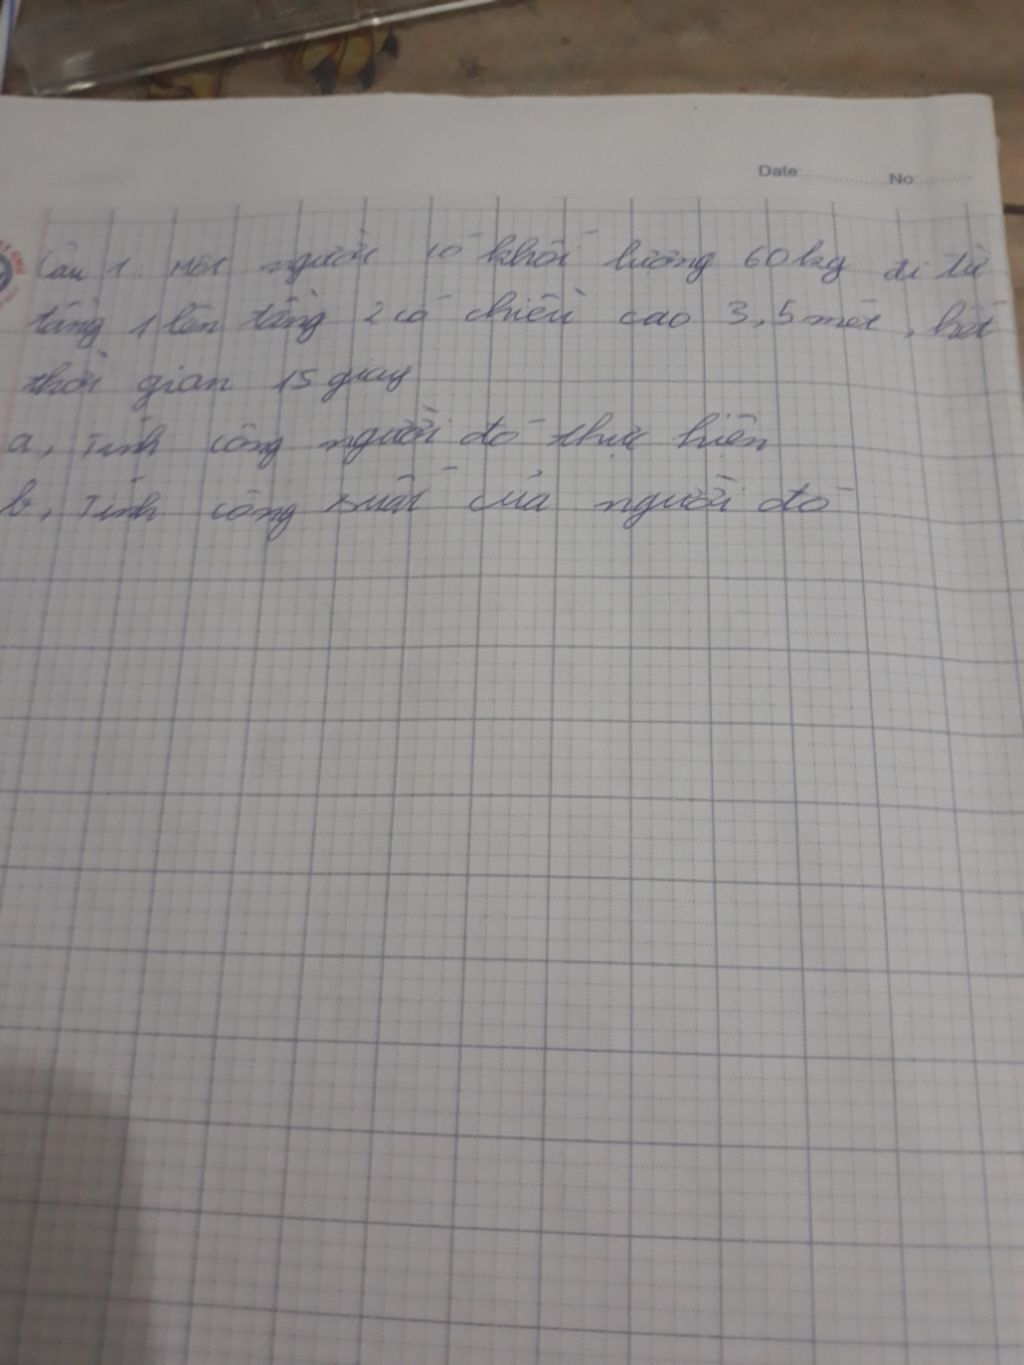 Date: No:
Câu 1. Một người có khối lượng 60kg đi từ
tầng 1 lên tầng 2 có chiều cao 3,5 mét, hết
thời gian 15 giây
a, Tính công người đó thực hiện
b, Tính công suất của người đó